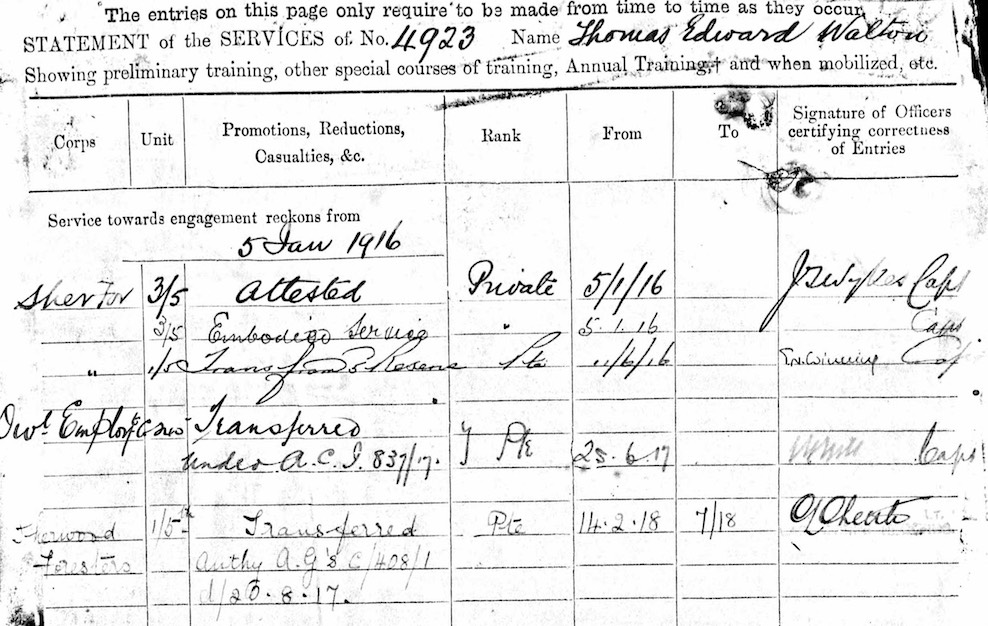 The entries on this page only require to be made from time to time as they occur.
STATEMENT of the SERVICES of. No. 4923 Name Thomas Edward Walton
Showing preliminary training, other special courses of training, Annual Training,† and when mobilized, etc.
Corps Unit Promotions, Reductions, Casualties, &c. Rank From To Signature of Officers certifying correctness of Entries
Service towards engagement reckons from
5 Jan 1916
Sher For 3/5 Attested Private 5/1/16 Capt
3/5 Embodied Service " 5.1.16 Capt
" 1/5 Trans from Pte /6/16
Employ Transferred
under A.C.I. 837/17. Pte 25.6.17 Capt
Sherwood 1/5th Transferred Pte 14.2.18 7/18 LT.
Foresters Authy A.G's C/408/1
d/20.8.17.